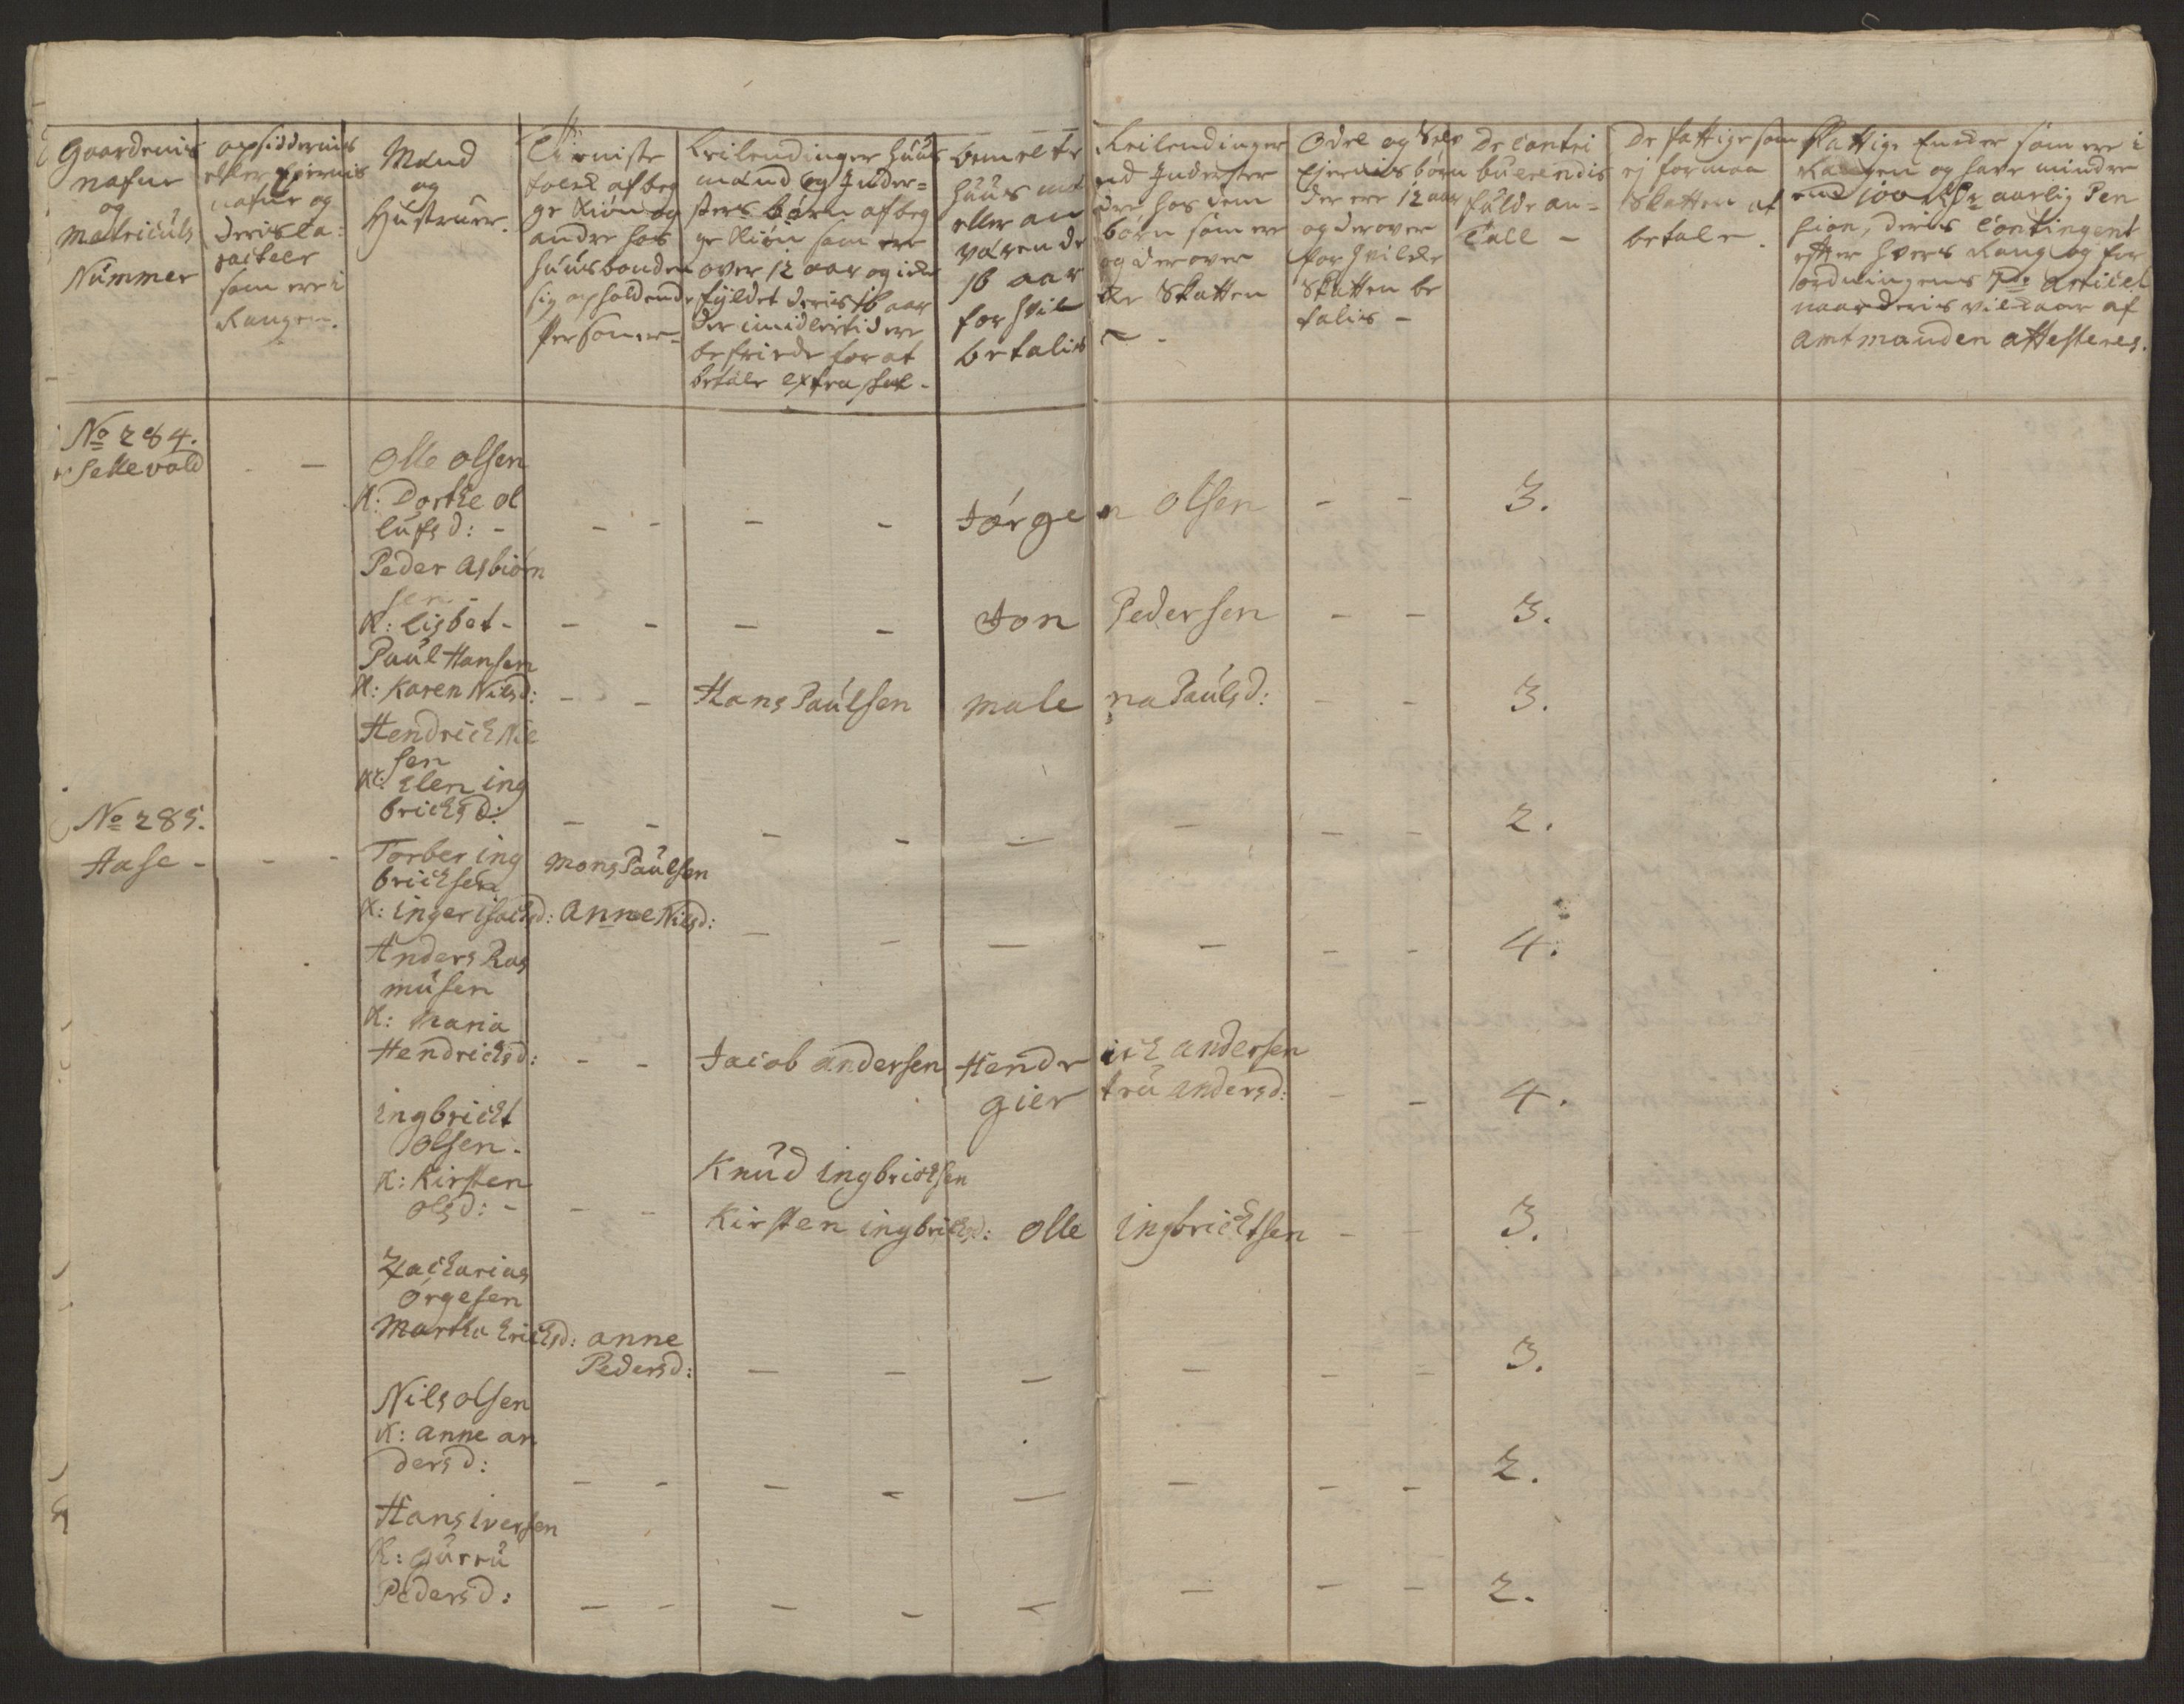 Gaardenis
nafne
og
Matriculs
Nummer
opsiddernis
eller Ejernis
nafne og
deris Ca=
racteer
som ere i
Rangen.
Mand
og
Hustruer.
Tieniste
folck af beg
ge Kiøn og
andre hos
huusbonden
sig opholdende
Personer-
Leilendinger huus
mænd og Inder=
sters børn af beg
ge Kiøn som ere
over 12 aar og icke
fyldet deris 16 aar
der imidlertid ere
befriede for at
betale extra skat-
bemelte
huus mæ
eller an
værende
16 aar
for hvil
betalis
Leilendinger
nd Inderster
dre hos dem
børn som ere
og derover
ke Skatten
Odel og Selv
Ejernis børn
der ere 12 aar
og derover
for hvilcke
Skatten be
talis -
De Contri
buerendis
fulde an=
tall -
De fattige som
ej formaa
Skatten at
betale.
fattige Encker som ere i
Rangen og have mindre
end 100 Rdr aarlig Pen
sion, deris Contingent
efter hvers Rang og for
ordningens 7de Articel
naar deris vilckaar af
Amtmanden attesteres.
No 284.
Sellevold - -
Olle Olsen
K: Dorthe ol
lufsd: - - - - - Jørgen Olsen - - 3.
Peder Asbiørn
sen -
K: Lisbet - - - - - Jon Pedersen - - 3.
Paul Hansen
K: Karen Nilsd: - - Hans Paulsen Malena Paulsd: - - 3.
Hendrich Nil
sen
K: Elen ing
brichsd: - - - - - - - - 2.
No 285.
Hase - - -
Torber ing
brichsen Mons Paulsen
K: inger isachsd: Anne Nilsd: - - - - - - 4.
Anders Ras
musen
K: Maria
Hendrichsd: - - Jacob Andersen Hendrich Andersen
giertru Andersd: - - 4.
ingbricht
Olsen -
K: Kirsten Knud ingbrichtsen
Olsd: - - - Kirsten ingbrichtsd: Olle ingbrichtsen - - 3.
Zacharias
Ørgesen
Martha Erichsd: Anne
Pedersd: - - - - - - 3.
Nils Olsen
K: Anne An
dersd: - - - - - - - - 2.
Hans iversen
K: Gurru
Pedersd: - - - - - - - - 2.